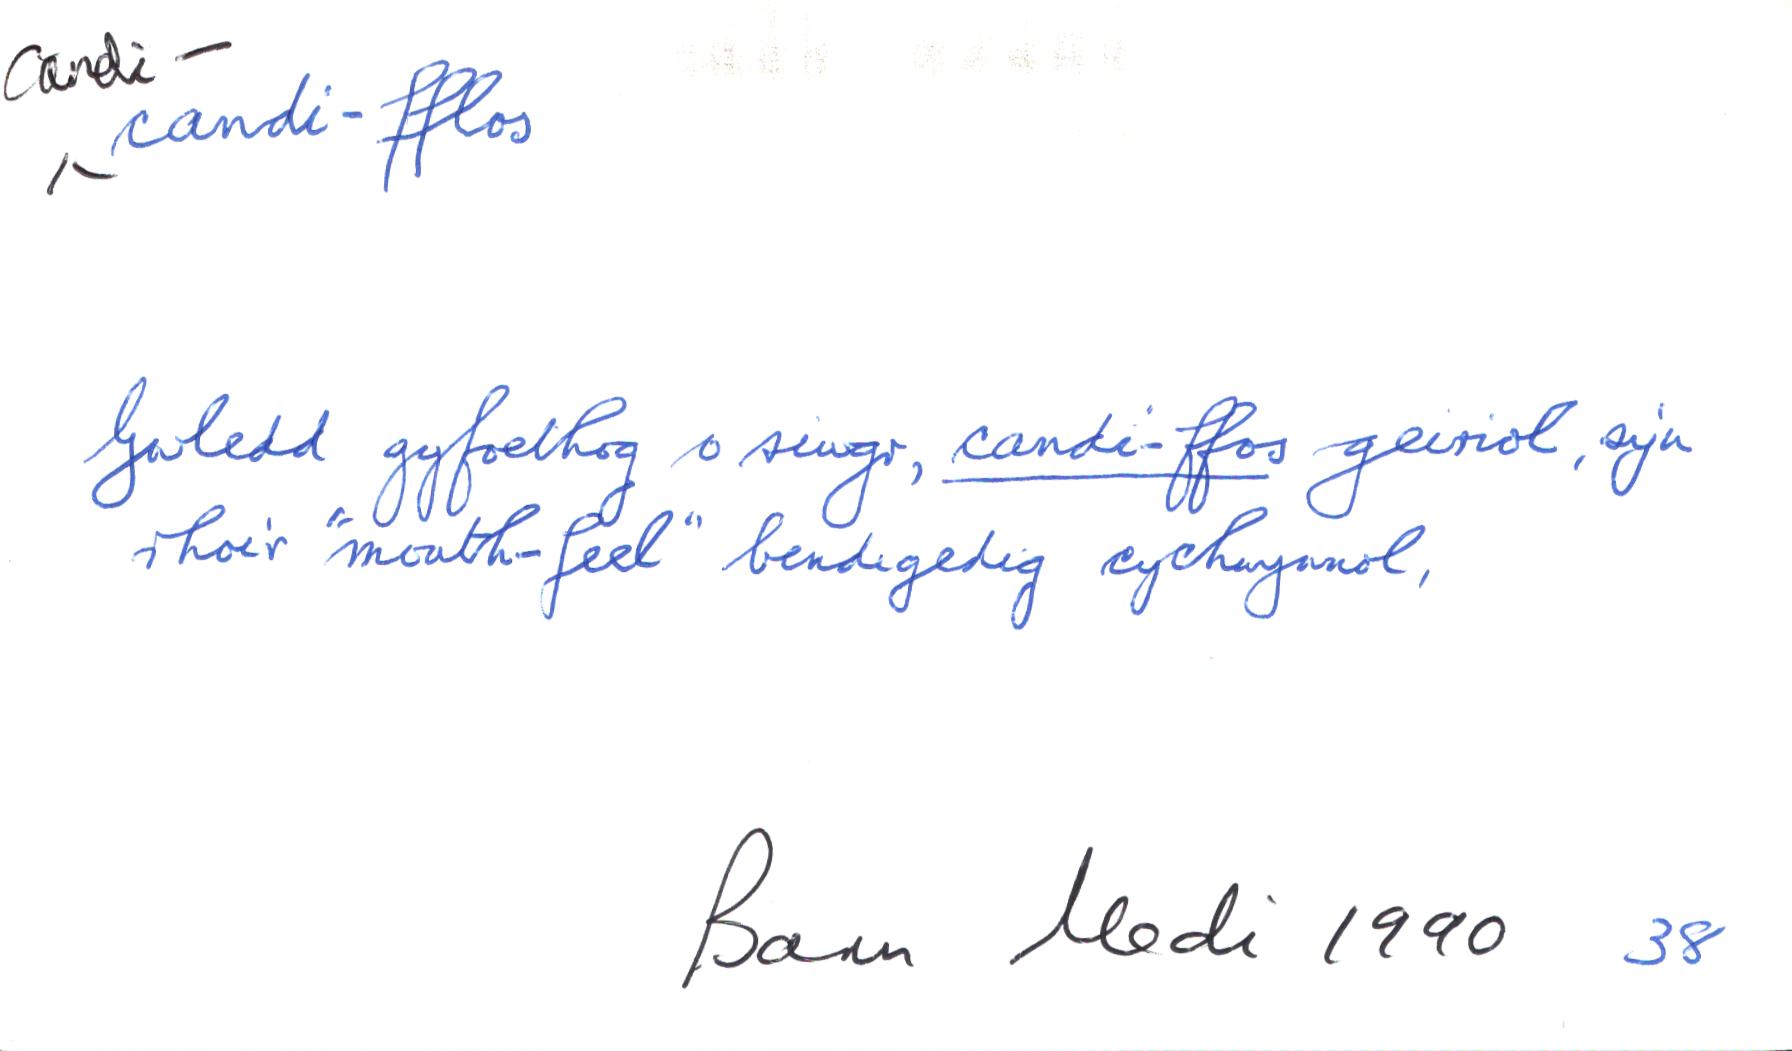 candi-
candi-fflos
Gwledd gyfoethog o siwgr, candi-ffos geiriol, sy'n
rhoi'r "mouth-feel" bendigedig cychwynnol,
Barn Medi 1990 38